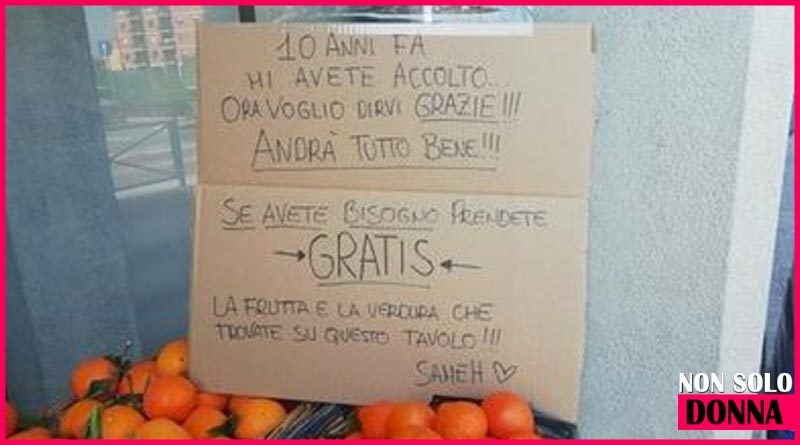 10 ANNI FA
MI AVETE ACCOLTO...
ORA VOGLIO DIRVI GRAZIE!!!
ANDRÀ TUTTO BENE!!!
SE AVETE BISOGNO PRENDETE
→GRATIS←
LA FRUTTA E LA VERDURA CHE
TROVATE SU QUESTO TAVOLO!!!
SAMEH ♡
NON SOLO
DONNA